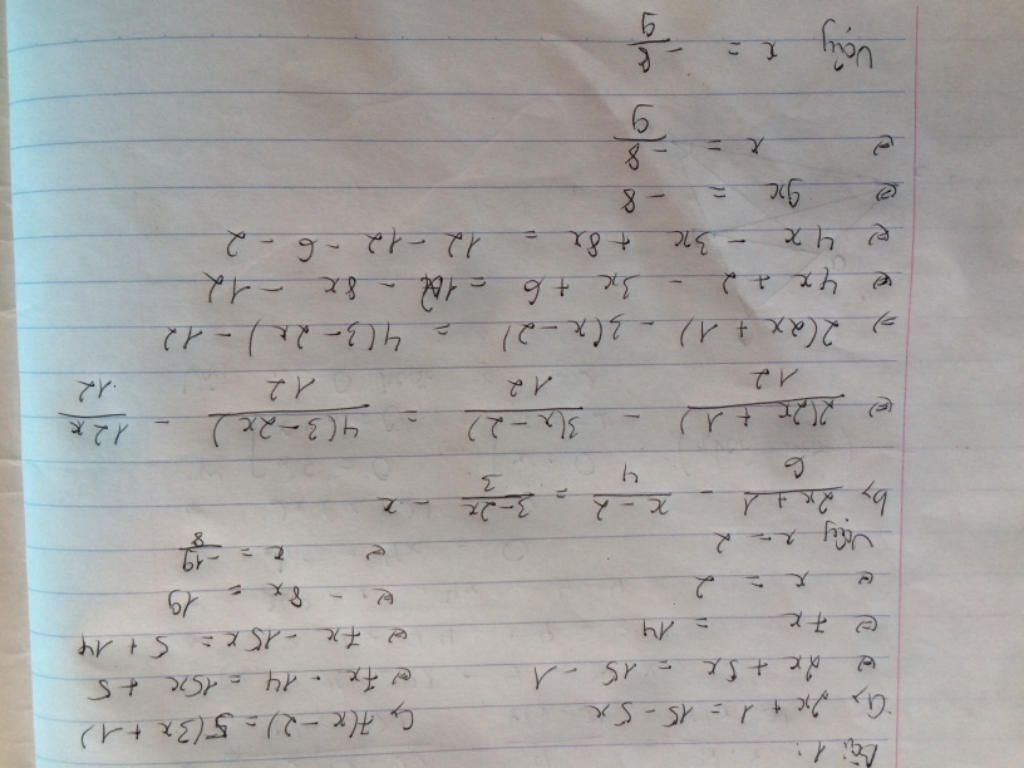 Bài 1:
a, 2x + 1 = 15 - 5x
⇔ 2x + 5x = 15 - 1
⇔ 7x = 14
⇔ x = 2
Vậy x = 2
c, 7(x - 2) = 5(3x + 1)
⇔ 7x - 14 = 15x + 5
⇔ 7x - 15x = 5 + 14
⇔ - 8x = 19
⇔ x = -19/8
b, (2x + 1)/6 - (x - 2)/4 = (3 - 2x)/3 - x
⇔ 2(2x + 1)/12 - 3(x - 2)/12 = 4(3 - 2x)/12 - 12x/12
⇒ 2(2x + 1) - 3(x - 2) = 4(3 - 2x) - 12
⇔ 4x + 2 - 3x + 6 = 12 - 8x - 12
⇔ 4x - 3x + 8x = 12 - 12 - 6 - 2
⇔ 9x = - 8
⇔ x = -8/9
Vậy x = -8/9